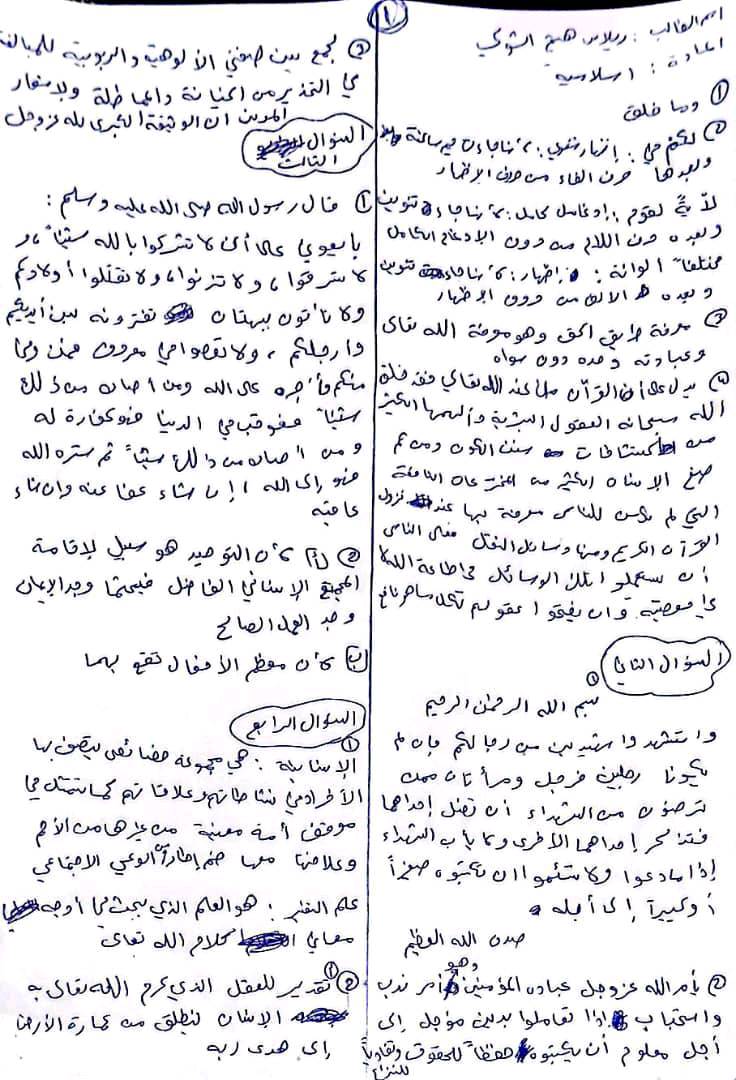 ①
اسم الطالب : ريلاس هيج الشوكي
المادة : اسلامية
① وما خلق
② لكم في : إظهار شفوي : لأنها جاءت ميم ساكنة
وبعدها حرف الفاء من حروف الإظهار
لآيةً لقوم : إدغام كامل : لأنها جاءت تنوين
وبعده حرف اللام من حروف الإدغام الكامل
مختلفاً ألوانه : إظهار : لأنها جاءت تنوين
وبعده الألف من حروف الإظهار
③ معرفة طريق الحق وهو معرفة الله تعالى
وعبادته وحده دون سواه
④ يدل على أن القرآن من عند الله تعالى فقد خلق
الله سبحانه العقول البشرية وألهمها الكثير
من اكتشافات سنن الكون ومن ثم
صنع الإنسان الكثير من المخترعات النافعة
التي لم يكن للناس معرفة بها عند نزول
القرآن الكريم ومنها وسائل النقل فعلى الناس
أن يستعملوا تلك الوسائل في طاعة الله لا
في معصيته وأن يفتحوا عقولهم لكل ما هو نافع
السؤال الثاني
①
بسم الله الرحمن الرحيم
واستشهدوا شهيدين من رجالكم فإن لم
يكونا رجلين فرجل وامرأتان ممن
ترضون من الشهداء أن تضل إحداهما
فتذكر إحداهما الأخرى ولا يأب الشهداء
إذا ما دعوا ولا تسئموا ان تكتبوه صغيراً
أو كبيراً إلى أجله
صدق الله العظيم
② يأمر الله عز وجل عباده المؤمنين وهو أمر ندب
واستحباب إذا تعاملوا بدين مؤجل إلى
أجل معلوم أن يكتبوه حفظاً للحقوق وتفادياً
للنزاع
③ لجمع بين صفتي الألوهية والربوبية للمبالغة
في التحذير من الخيانة والمماطلة ولإشعار
المدين ان الوثيقة الكبرى لله عز وجل
السؤال
الثالث
① قال رسول الله صلى الله عليه وسلم :
بايعوني على أن لا تشركوا بالله شيئاً ، و
لا تسرقوا ، ولا تزنوا ، ولا تقتلوا أولادكم
ولا تأتون ببهتان تفترونه بين أيديكم
وأرجلكم ، ولا تعصوا في معروف فمن وفى
منكم فأجره على الله ومن أصاب من ذلك
شيئاً فعوقب في الدنيا فهو كفارة له
ومن أصاب من ذلك شيئاً ثم ستره الله
فهو إلى الله ، إن شاء عفا عنه وإن شاء
عاقبه
② لأن التوحيد هو سبيل لإقامة
المجتمع الإنساني الفاضل فحيثما وجد الإيمان
وجد العمل الصالح
ب) لأن معظم الأفعال تقع بهما
السؤال الرابع
①
الإنسانية : هي مجموعة خصائص يتصف بها
الأفراد في نشاطاتهم وعلاقاتهم كما تتمثل في
موقف أمة معينة من غيرها من الأمم
وعلاقتها معها ضمن إطار الوعي الاجتماعي
علم التفسير : هو العلم الذي يبحث في أوجه
معاني كلام الله تعالى
② ① تقدير للعقل الذي كرم الله تعالى به
الإنسان لينطلق من عمارة الأرض
إلى هدى ربه